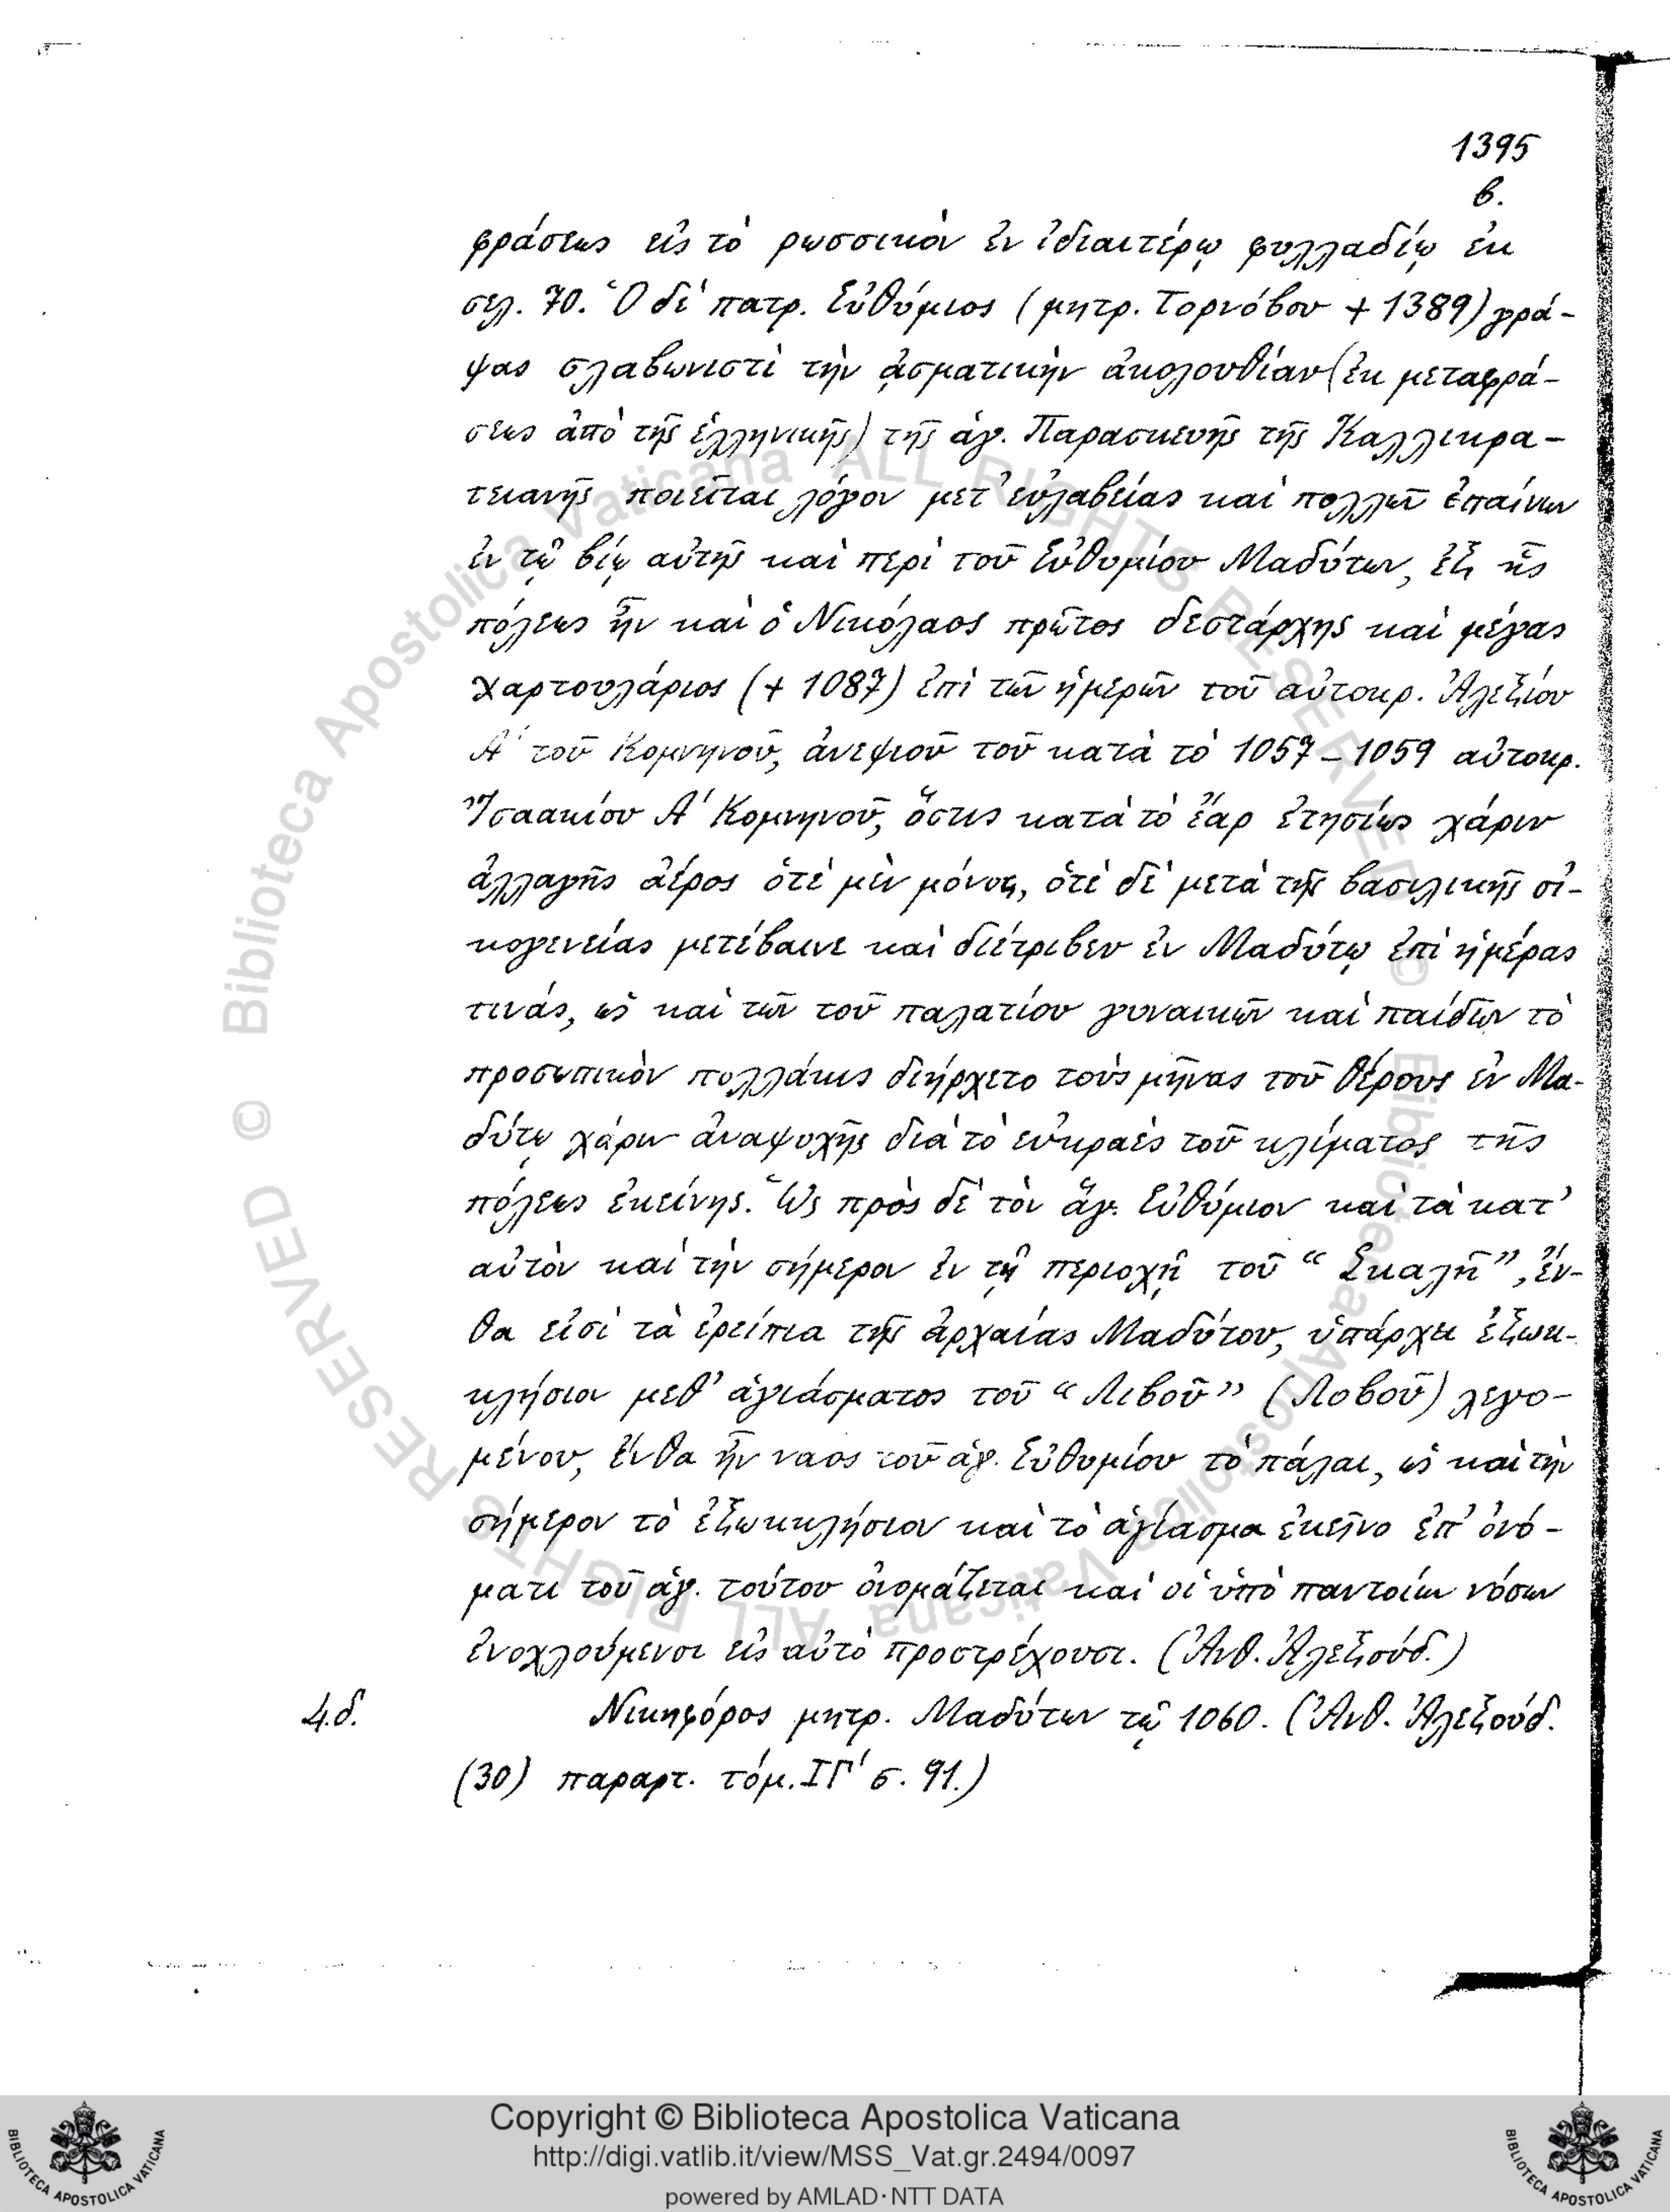 1395
β.
φράσεως εἰς τὸ ρωσσικὸν ἐν ἰδιαιτέρῳ φυλλαδίῳ ἐκ
σελ. 70. Ὁ δὲ πατρ. Εὐθύμιος (μητρ. Τορνόβου + 1389) γρά-
ψας σλαβωνιστὶ τὴν ᾀσματικὴν ἀκολουθίαν (ἐκ μεταφρά-
σεως ἀπὸ τῆς ἑλληνικῆς) τῆς ἁγ. Παρασκευῆς τῆς Καλλικρα-
τειανῆς ποιεῖται λόγον μετ' εὐλαβείας καὶ πολλῶν ἐπαίνων
ἐν τῷ βίῳ αὐτῆς καὶ περὶ τοῦ Εὐθυμίου Μαδύτων, ἐξ ἧς
πόλεως ἦν καὶ ὁ Νικόλαος πρῶτος δεστάρχης καὶ μέγας
χαρτουλάριος (+ 1087) ἐπὶ τῶν ἡμερῶν τοῦ αὐτοκρ. Ἀλεξίου
Α' τοῦ Κομνηνοῦ, ἀνεψιοῦ τοῦ κατὰ τὸ 1057-1059 αὐτοκρ.
Ἰσαακίου Α' Κομνηνοῦ, ὅστις κατὰ τὸ ἔαρ ἐτησίως χάριν
ἀλλαγῆς ἀέρος ὁτὲ μὲν μόνος, ὁτὲ δὲ μετὰ τῆς βασιλικῆς οἰ-
κογενείας μετέβαινε καὶ διέτριβεν ἐν Μαδύτῳ ἐπὶ ἡμέρας
τινάς, ὡς καὶ τῶν τοῦ παλατίου γυναικῶν καὶ παίδων τὸ
προσωπικὸν πολλάκις διήρχετο τοὺς μῆνας τοῦ θέρους ἐν Μα-
δύτῳ χάριν ἀναψυχῆς διὰ τὸ εὐκραὲς τοῦ κλίματος τῆς
πόλεως ἐκείνης. Ὡς πρὸς δὲ τὸν ἅγ. Εὐθύμιον καὶ τὰ κατ'
αὐτὸν καὶ τὴν σήμερον ἐν τῇ περιοχῇ τοῦ “Σκαλῆ”, ἔν-
θα εἰσὶ τὰ ἐρείπια τῆς ἀρχαίας Μαδύτου, ὑπάρχει ἐξωκ-
κλήσιον μεθ' ἁγιάσματος τοῦ “Λιβοῦ” (Λοβοῦ) λεγο-
μένου, ἔνθα ἦν ναος τοῦ ἁγ. Εὐθυμίου τὸ πάλαι, ὡς καὶ τὴν
σήμερον τὸ ἐξωκκλήσιον καὶ τὸ ἁγίασμα ἐκεῖνο ἐπ' ὀνό-
ματι τοῦ ἁγ. τούτου ὀνομάζεται καὶ οἱ ὑπὸ παντοίων νόσων
ἐνοχλούμενοι εἰς αὐτὸ προστρέχουσι. (Ἀνθ. Ἀλεξούδ.)
4.δ. Νικηφόρος μητρ. Μαδύτων τῷ 1060. (Ἀνθ. Ἀλεξούδ.
(30) παραρτ. τόμ. ΙΓ' σ. 91.)
© Biblioteca Apostolica Vaticana ALL RIGHTS RESERVED © Biblioteca Apostolica Vaticana ALL RIGHTS RESERVED
Copyright © Biblioteca Apostolica Vaticana
http://digi.vatlib.it/view/MSS_Vat.gr.2494/0097
powered by AMLAD·NTT DATA
BIBLIOTECA APOSTOLICA VATICANA
BIBLIOTECA APOSTOLICA VATICANA